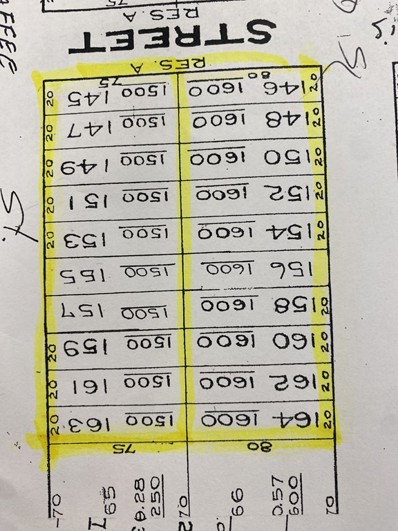 70 600 66 70 250 65 70
80 75
20 164 1600 1500 163 20
20 162 1600 1500 161 20
20 160 1600 1500 159 20
20 158 1600 1500 157
156 1600 1500 155
20 154 1600 1500 153 20
20 152 1600 1500 151 20
20 150 1600 1500 149 20
20 148 1600 1500 147 20
20 146 1600 1500 145 20
80 75
RES. A
STREET
RES. A
75
St.